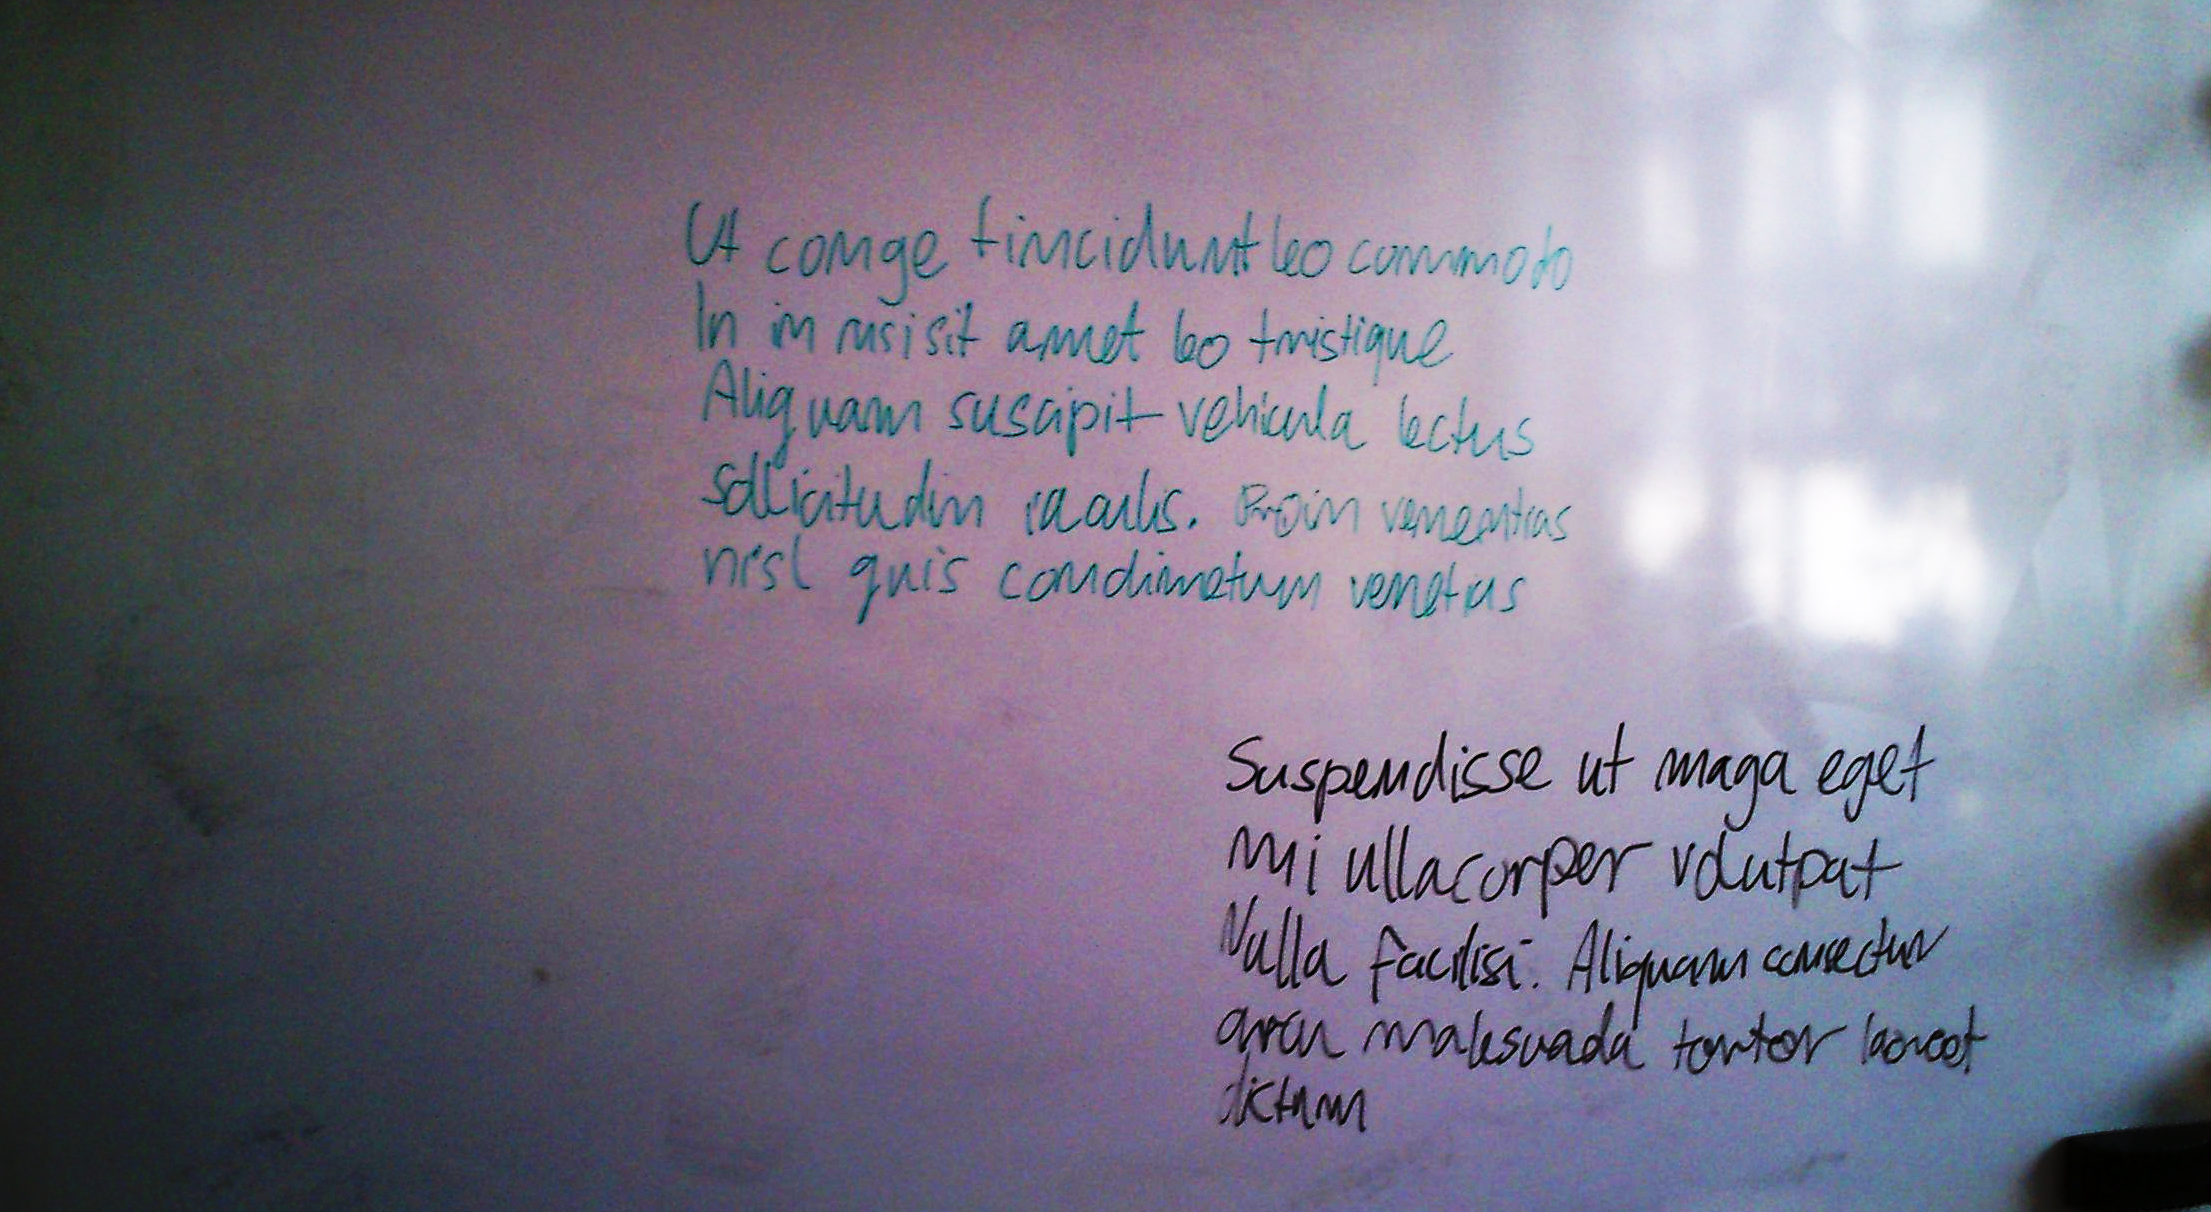 Ut conge tincidunt leo commodo
In in risi sit amet leo tristique
Aliquam suscipit vehicula lectus
sollicitudin iaculis. Proin
nisl quis condimetum
Suspendisse ut maga eget
mi ullacorper volutpat
Nulla facilisi. Aliquam consectur
arcu malesuada tortor laoreet
dictum